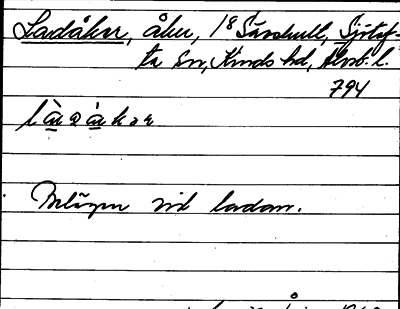 Ladåker, åker, 18 Särshult, Sjötof-
ta sn, Kinds hd, Älvsb. l.
794
Belägen vid ladan.